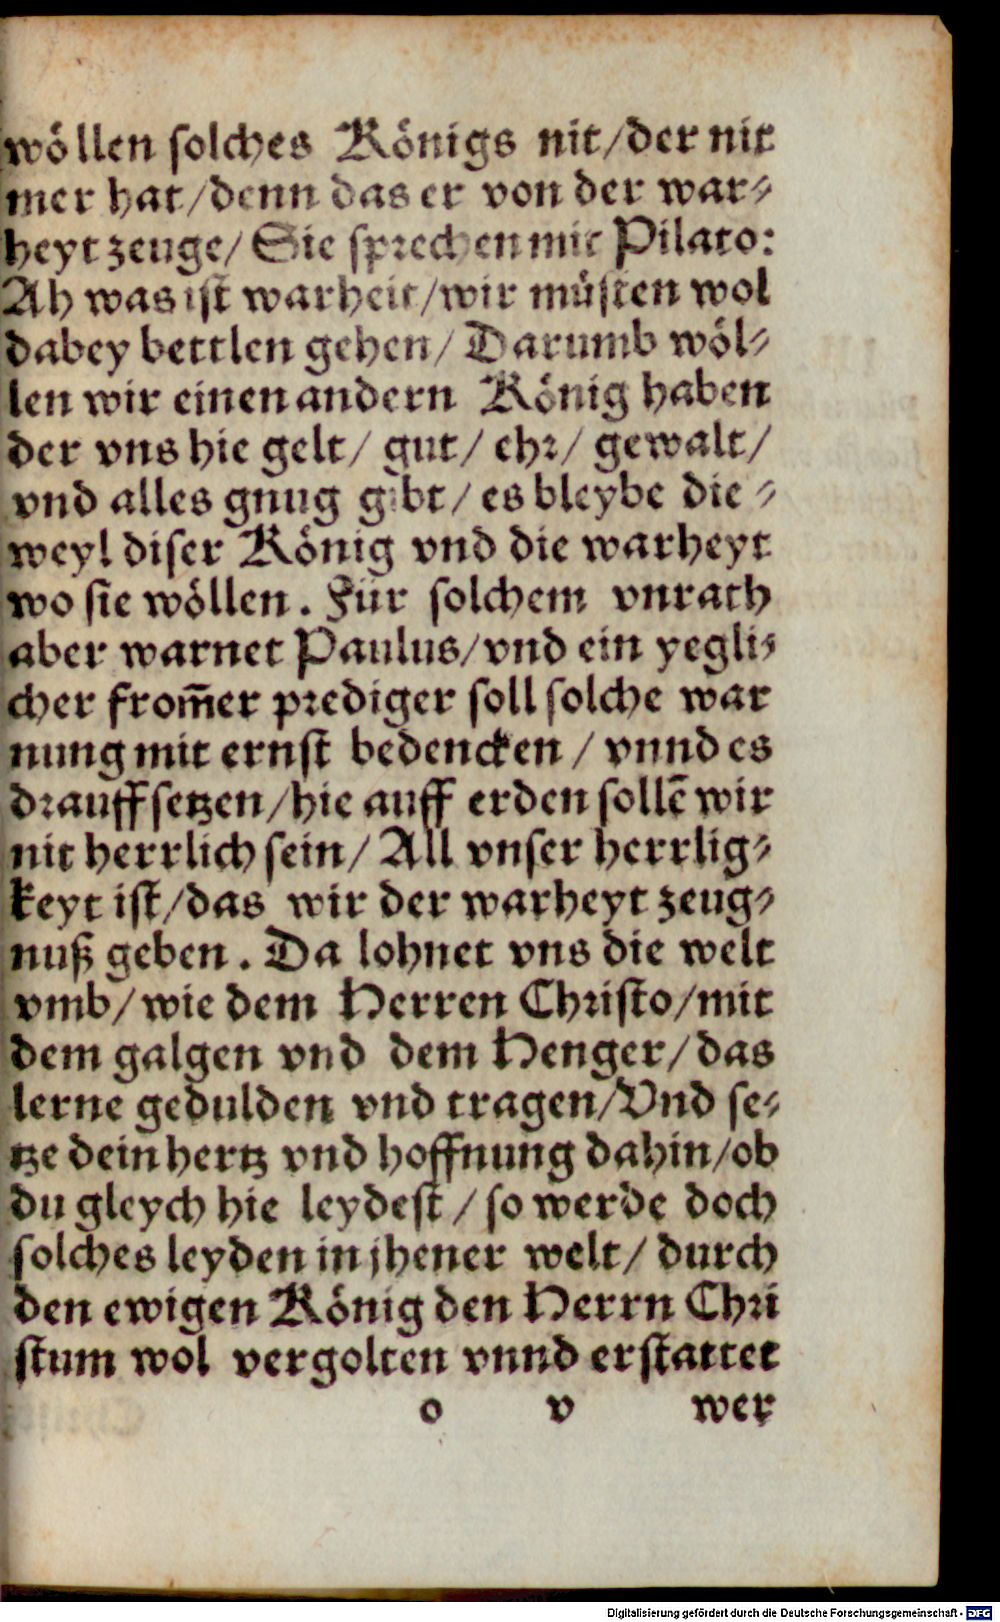 wöllen solches Königs nit/der nit
mer hat/denn das er von der war⸗
heyt zeuge/ Sie sprechen mit Pilato:
Ah was ist warheit/wir müsten wol
dabey bettlen gehen/ Darumb wöl⸗
len wir einen andern König haben
der vns hie gelt/ gut/ ehr/ gewalt/
vnd alles gnug gibt/ es bleybe die⸗
weyl diser König vnd die warheyt
wo sie wöllen. Für solchem vnrath
aber warnet Paulus/vnd ein yegli⸗
cher from̃er prediger soll solche war
nung mit ernst bedencken/ vnnd es
drauff setzen/hie auff erden sollẽ wir
nit herrlich sein/ All vnser herrlig⸗
keyt ist/das wir der warheyt zeug⸗
nuß geben. Da lohnet vns die welt
vmb/wie dem Herren Christo/mit
dem galgen vnd dem Henger/das
lerne gedulden vnd tragen/Vnd se⸗
tze dein hertz vnd hoffnung dahin/ob
du gleych hie leydest/ so werde doch
solches leyden in jhener welt/ durch
den ewigen König den Herrn Chri
stum wol vergolten vnnd erstattet
o v wer
Digitalisierung gefördert durch die Deutsche Forschungsgemeinschaft - DFG